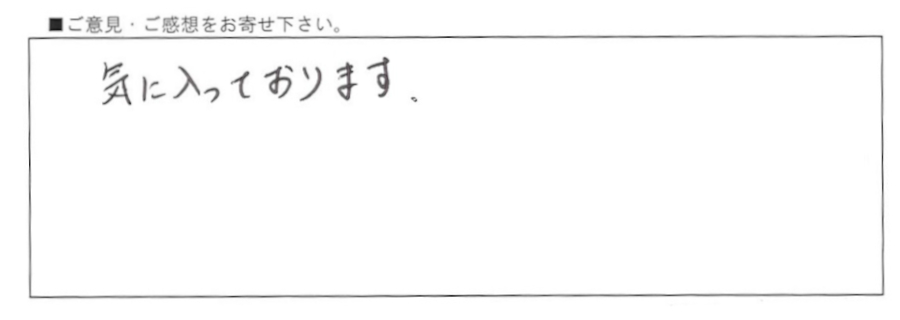 ■ご意見・ご感想をお寄せ下さい。
気に入っております。